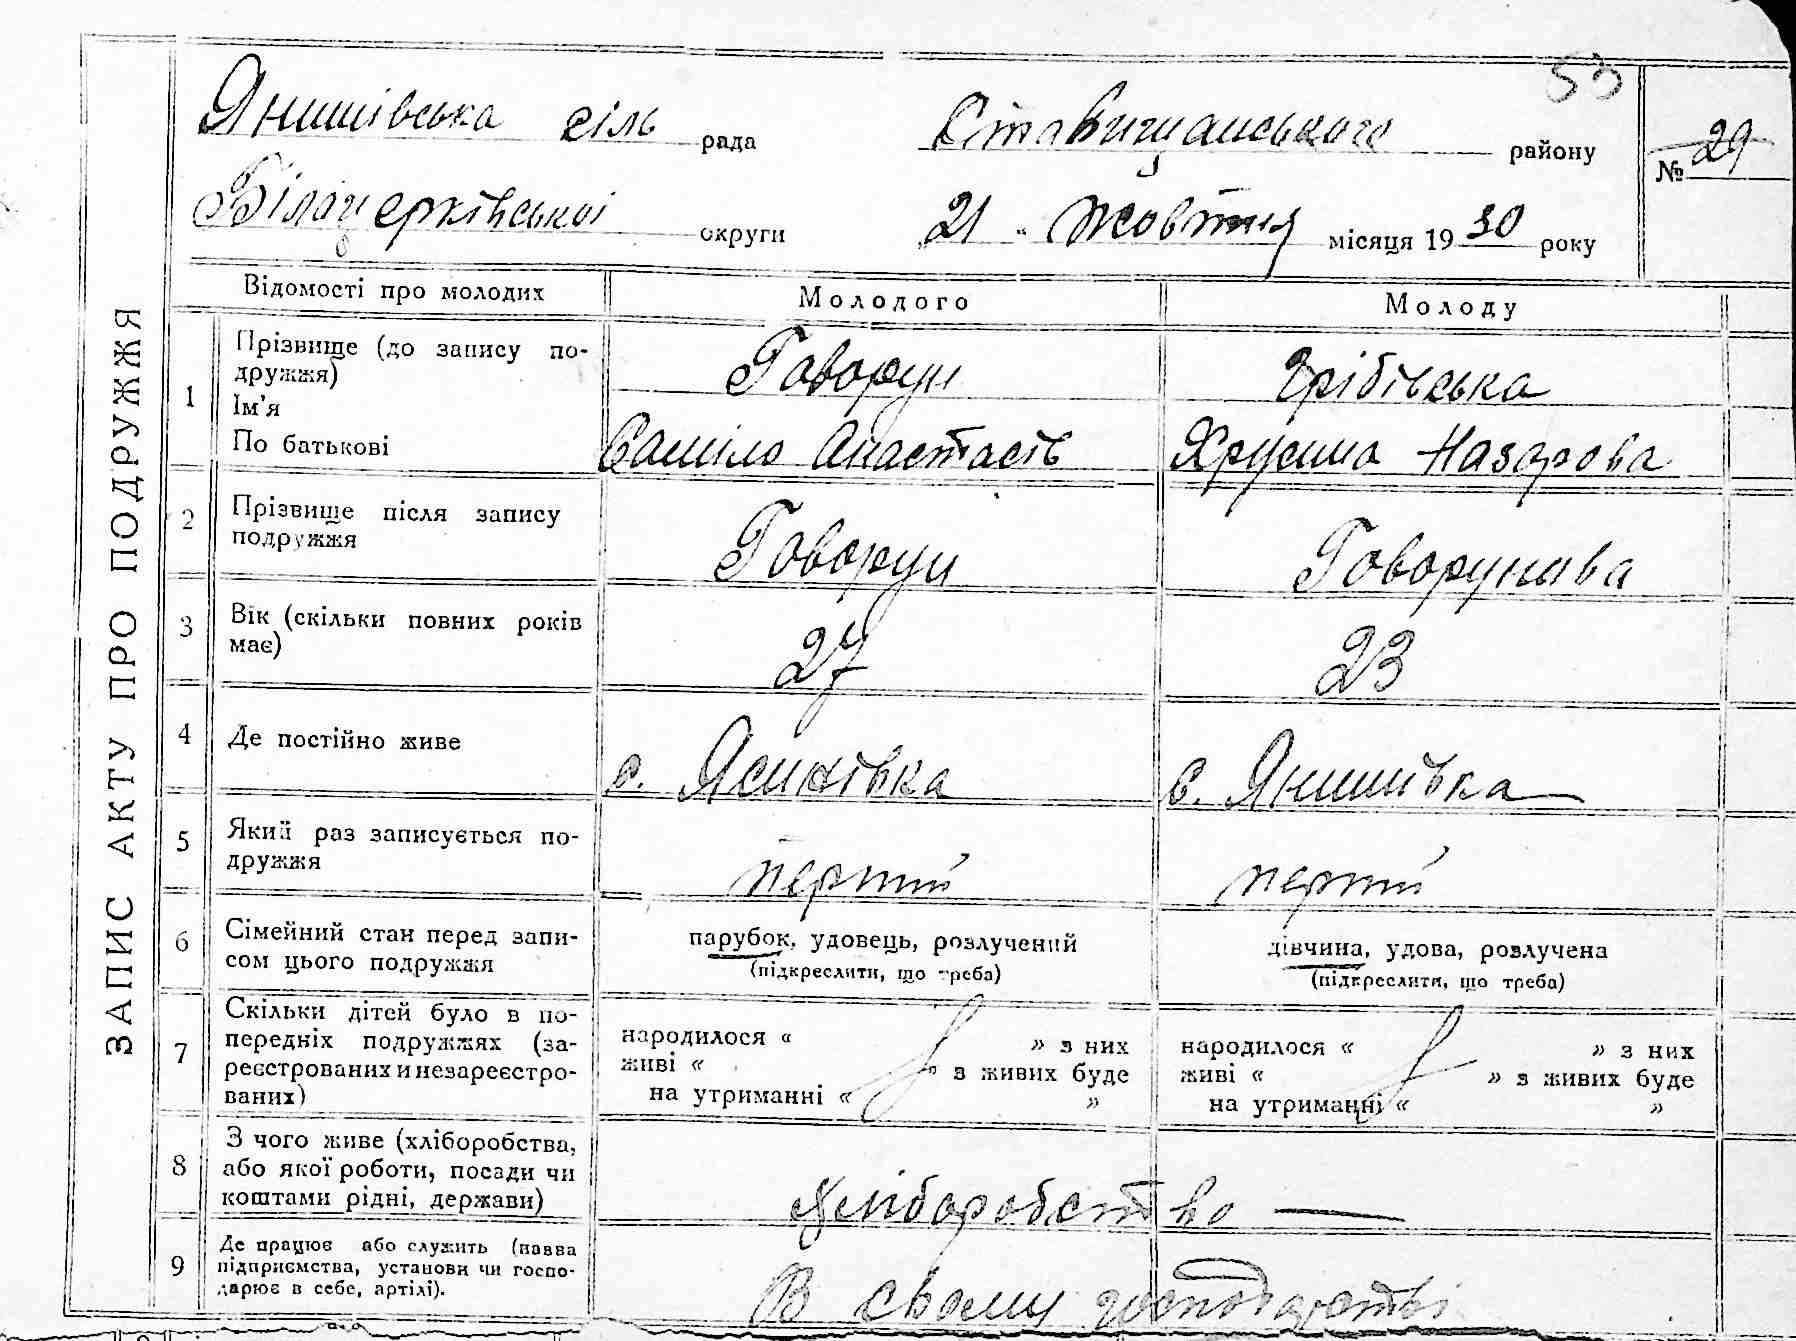 53
Янишівська сіль рада Ставищанського району № 29
Білоцерківської округи 21 " жовтня місяця 19 30 року
ЗАПИС АКТУ ПРО ПОДРУЖЖЯ
Відомості про молодих Молодого Молоду
1 Прізвище (до запису по-
дружжя) Говорун Грібівська
Ім'я
По батькові Саміло Анастасів Хрусина Назарова
2 Прізвище після запису
подружжя Говорун Говорунива
3 Вік (скільки повних років
має) 27 23
4 Де постійно живе с. Ясинівка с. Янишівка
5 Який раз записується по-
дружжя перший перший
6 Сімейний стан перед запи-
сом цього подружжя
парубок, удовець, розлучений дівчина, удова, розлучена
(підкреслити, що треба) (підкреслити, що треба)
7 Скільки дітей було в по-
передніх подружжях (за-
реєстрованих и незареєстро-
ваних)
народилося « » з них народилося « » з них
живі « » з живих буде живі « » з живих буде
на утриманні « » на утриманні « »
8 З чого живе (хліборобства,
або якої роботи, посади чи
коштами рідні, держави) хліборобство —
9 Де працює або служить (назва
підприємства, установи чи госпо-
дарює в себе, артілі). В своему господарстві